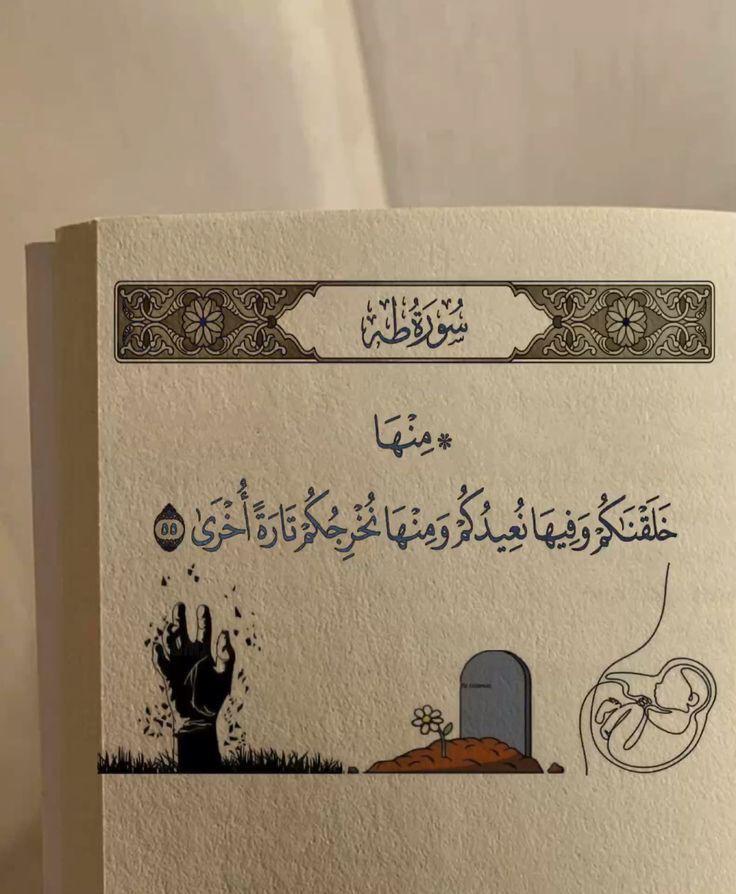 سُورَةُ طه
* مِنْهَا
خَلَقْنَاكُمْ وَفِيهَا نُعِيدُكُمْ وَمِنْهَا نُخْرِجُكُمْ تَارَةً أُخْرَىٰ ۝٥٥